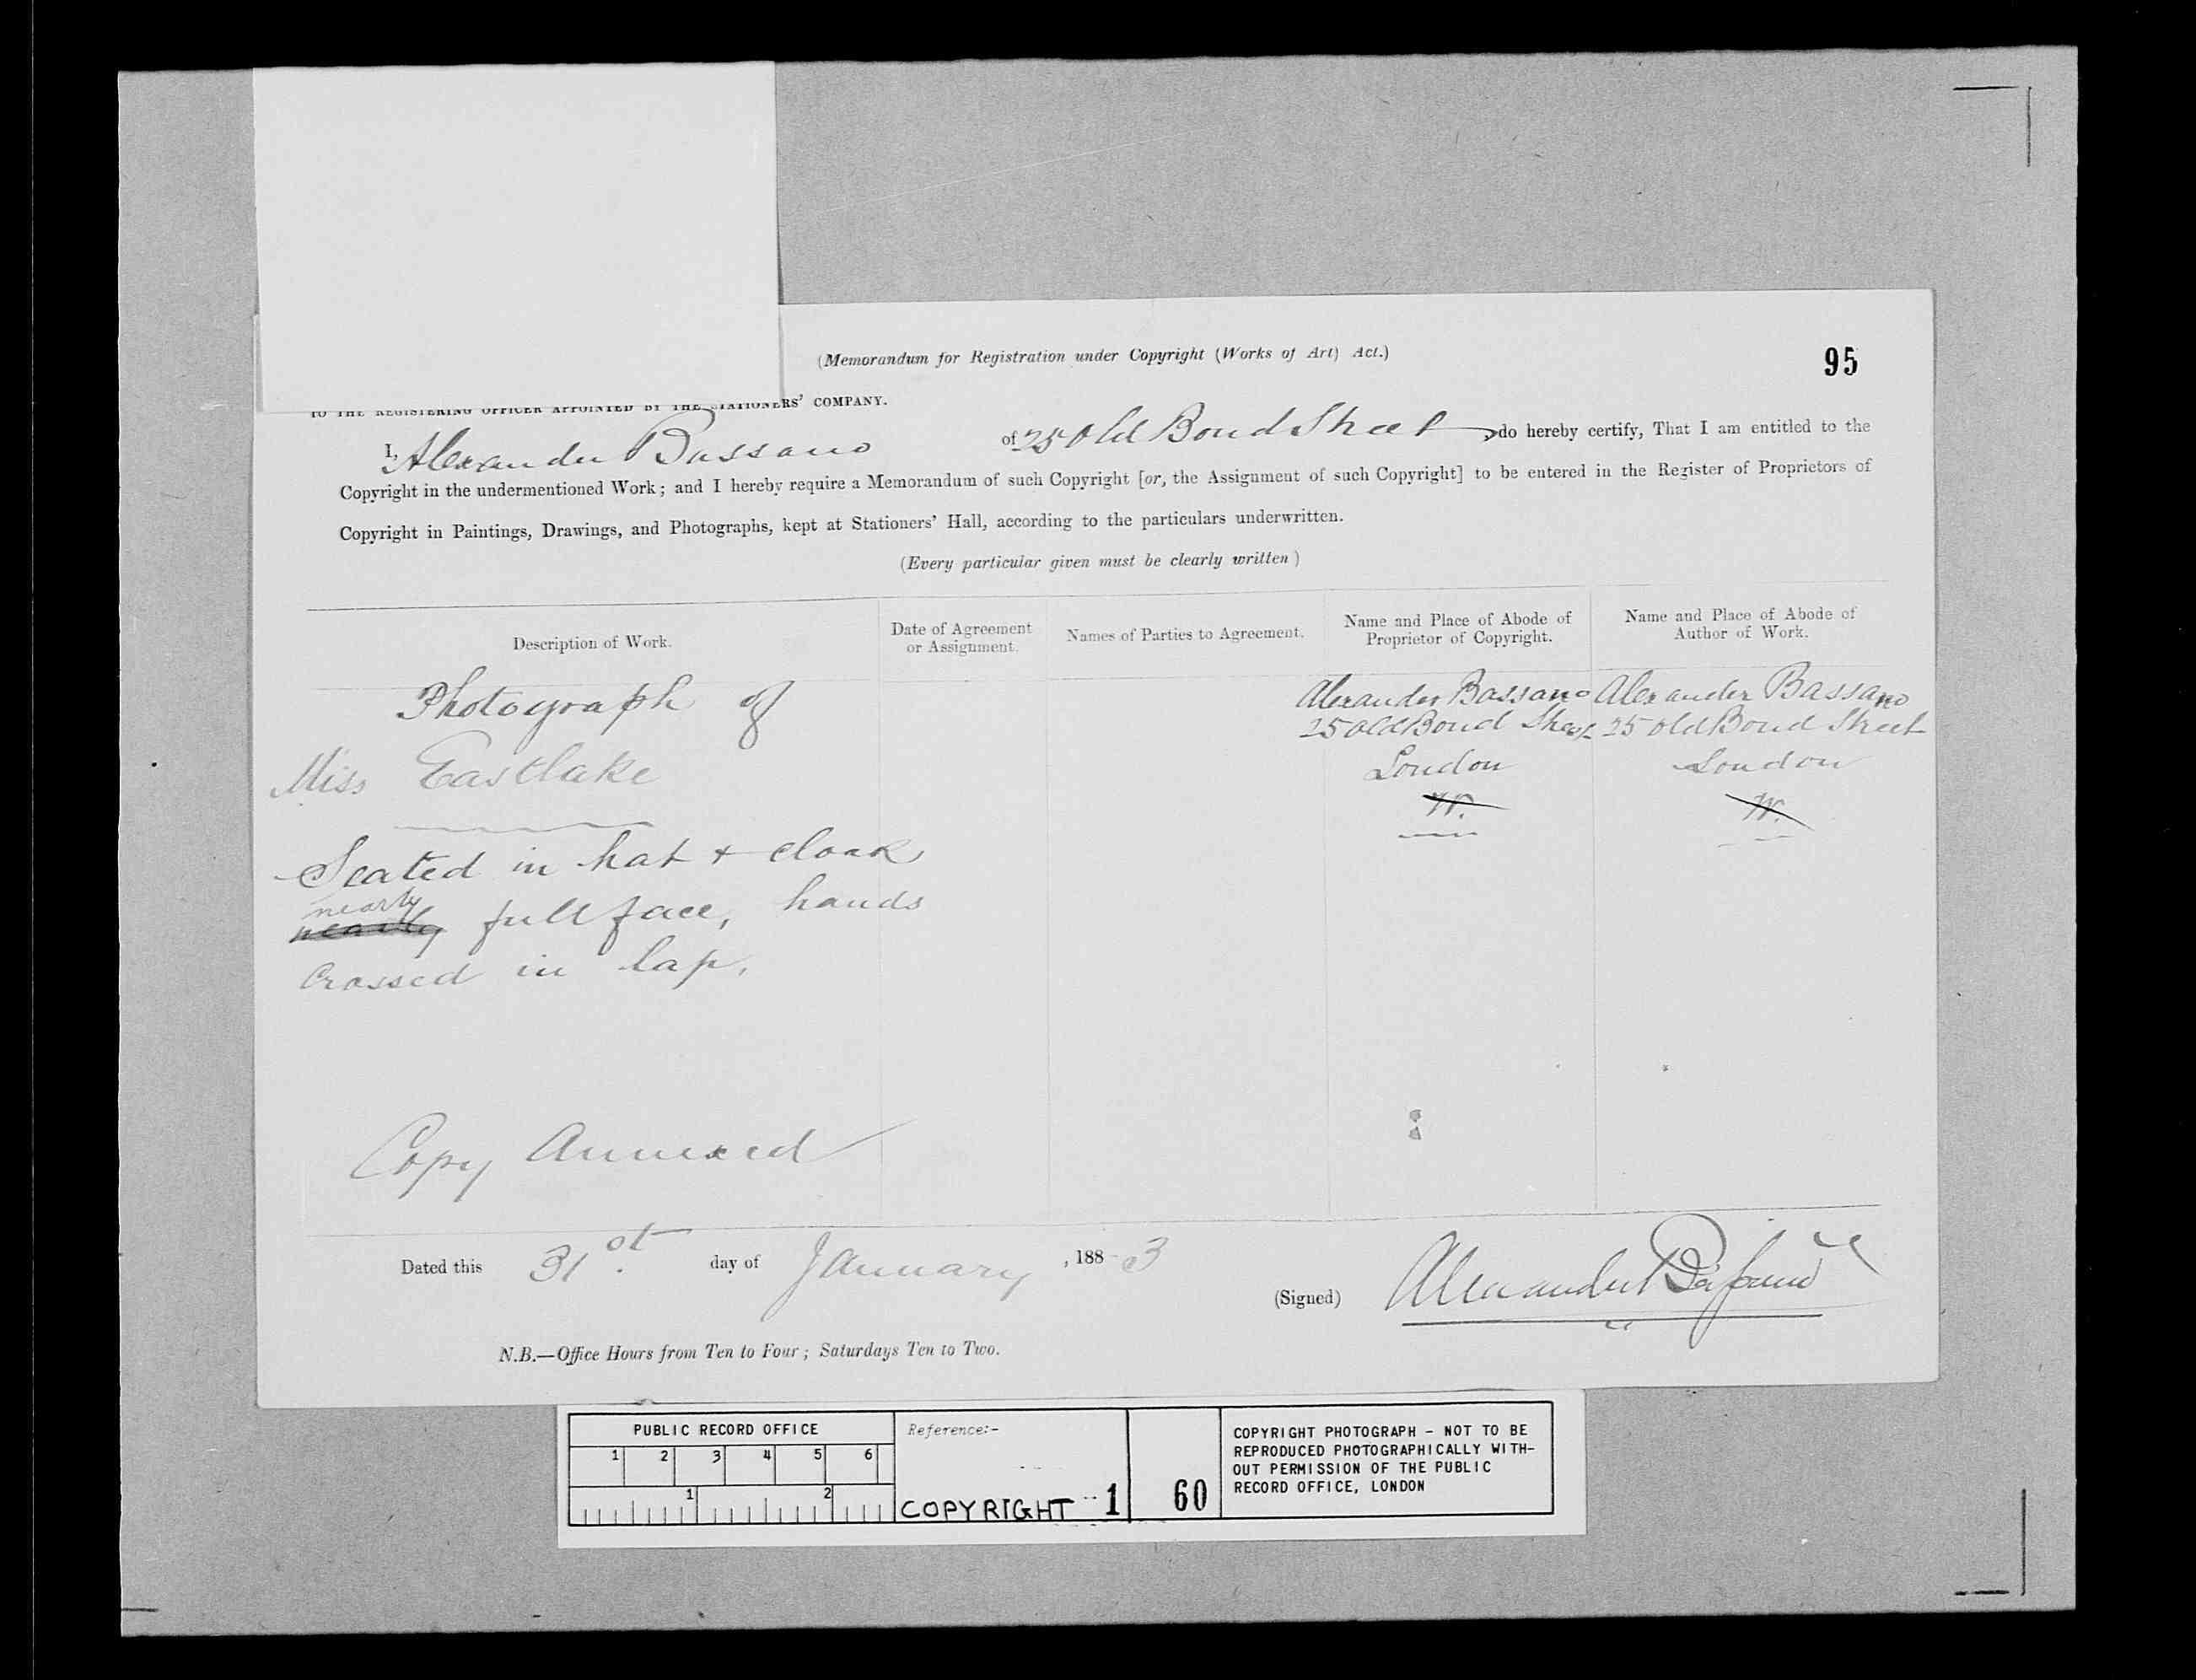 (Memorandum for Registration under Copyright (Works of Art) Act.)
95
TO THE REGISTERING OFFICER APPOINTED BY THE STATIONERS' COMPANY.
I, Alexander Bassano of 25 Old Bond Street do hereby certify, That I am entitled to the
Copyright in the undermentioned Work; and I hereby require a Memorandum of such Copyright [or, the Assignment of such Copyright] to be entered in the Register of Proprietors of
Copyright in Paintings, Drawings, and Photographs, kept at Stationers' Hall, according to the particulars underwritten.
(Every particular given must be clearly written)
Description of Work.
Date of Agreement
or Assignment.
Names of Parties to Agreement.
Name and Place of Abode of
Proprietor of Copyright.
Name and Place of Abode of
Author of Work.
Photograph of
Miss Eastlake
Seated in hat + cloak
nearly
nearly full face, hands
crossed in lap.
Copy Annexed
Alexander Bassano
25 Old Bond Street
London
W.
Alexander Bassano
25 Old Bond Street
London
W.
Dated this 31st day of January, 188-3
(Signed) Alexander Bassano
N.B.—Office Hours from Ten to Four; Saturdays Ten to Two.
PUBLIC RECORD OFFICE
1 2 3 4 5 6
1 2
Reference:-
COPYRIGHT 1
60
COPYRIGHT PHOTOGRAPH - NOT TO BE
REPRODUCED PHOTOGRAPHICALLY WITH-
OUT PERMISSION OF THE PUBLIC
RECORD OFFICE, LONDON